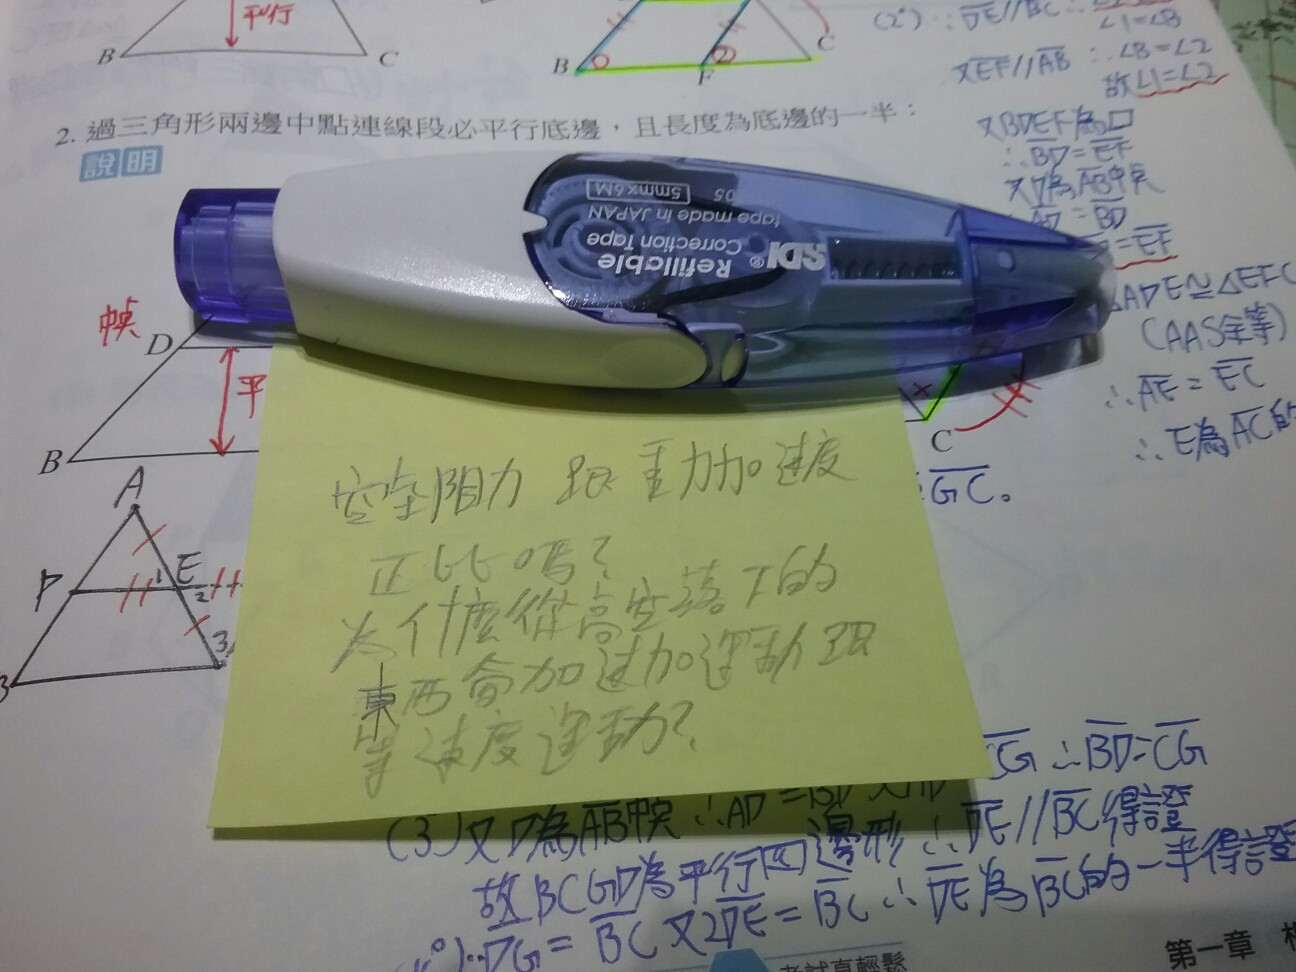 平行
B
C
B
F
2
C
(2°) ∵ DE//BC ∴
∠1=∠B
又EF//AB ∴∠B=∠2
故∠1=∠2
2. 過三角形兩邊中點連線段必平行底邊，且長度為底邊的一半：
說明
又BDEF為▱
∴BD=EF
又D為AB中点
AD=BD
=EF
△ADE≅△EFC
(AAS全等)
∴AE=EC
∴E為AC的
5mm×6M
05
tape made in JAPAN
Correction Tape
Refillable
SDI®
D
平
B
C
GC。
A
1
E
2
3
空氣阻力 跟重力加速度
正比嗎?
為什麼從高空落下的
東西會加速加運動跟
等速度運動?
CG ∴BD=CG
(3)又D為AB中点 ∴AD=BD
四邊形 ∴DE//BC得證
故BCGD為平行
∵DG=BC 又2DE=BC ∴DE為BC的一半得證
考試真輕鬆
第一章